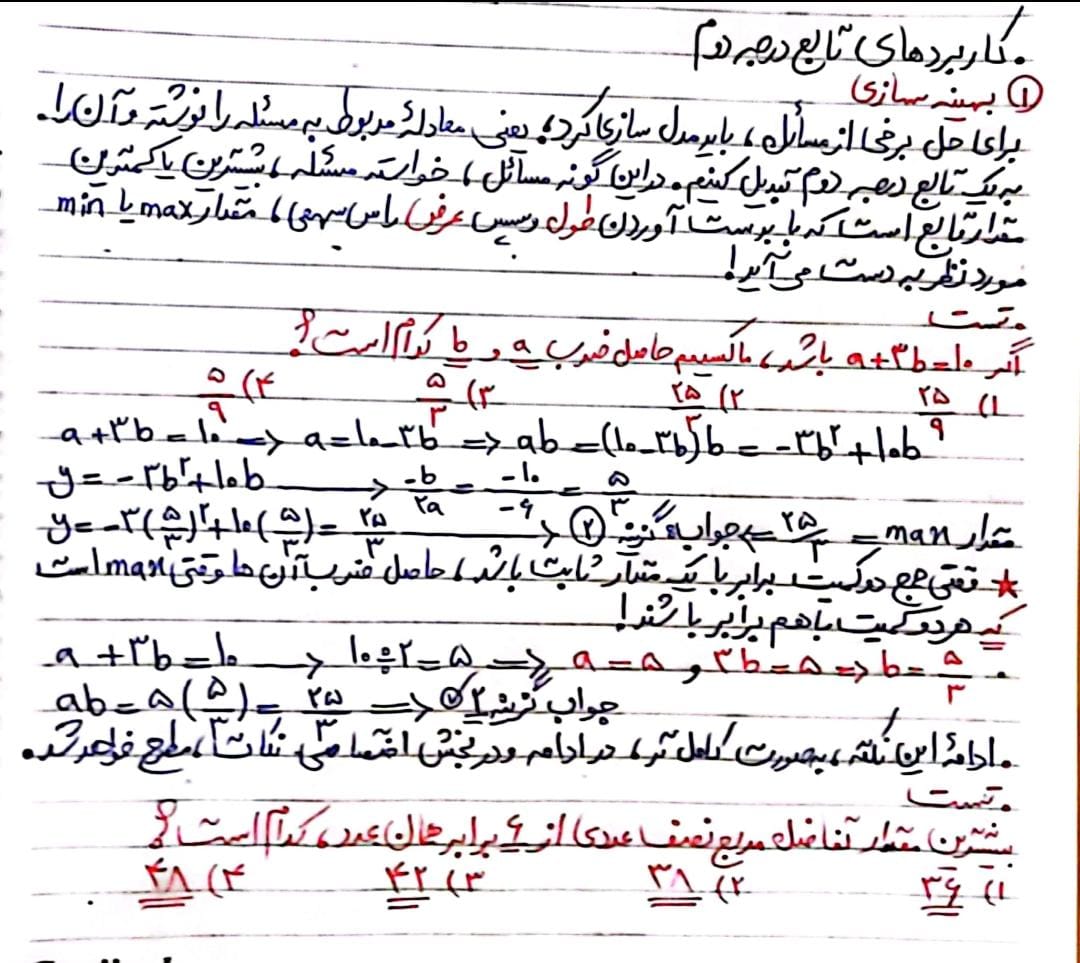 . کاربردهای تابع درجه دوم
① بهینه سازی
برای حل برخی از مسائل، باید مدل سازی کرد، یعنی معادلهٔ مربوط به مسئله را نوشته و آن را.
به یک تابع درجه دوم تبدیل کنیم. در این گونه مسائل، خواسته مسئله، بیشترین یا کمترین
مقدار تابع است که با بدست آوردن طول و سپس عرض رأس سهمی، مقدار max یا min
مورد نظر به دست می آید!
. تست
اگر a+۳b=۱۰ باشد، ماکسیمم حاصل ضرب a و b کدام است؟
۱) ۲۵/۹ ۲) ۲۵/۳ ۳) ۵/۳ ۴) ۵/۹
a+۳b=۱۰ => a=۱۰-۳b => ab=(۱۰-۳b)b = -۳b²+۱۰b
y=-۳b²+۱۰b → -b/۲a = -۱۰/-۶ = ۵/۳
y=-۳(۵/۳)²+۱۰(۵/۳)= ۲۵/۳ → مقدار max = ۲۵/۳ => جواب گزینه ②
★ وقتی جمع دو کمیت برابر با یک مقدار ثابت باشد، حاصل ضرب آن ها وقتی max است
که هر دو کمیت با هم برابر باشند!
a+۳b=۱۰ → ۱۰÷۲=۵ => a=۵ و ۳b=۵ => b=۵/۳ .
ab=۵(۵/۳)= ۲۵/۳ => جواب گزینه ۲ ✓
. ادامهٔ این نکته، بصورت کامل تر، در ادامه و در بخش اختصاصی نکات، مطرح خواهد شد.
. تست
بیشترین مقدار تفاضل مربع نصف عددی از ۶ برابر همان عدد، کدام است؟
۱) ۳۶ ۲) ۳۸ ۳) ۴۲ ۴) ۴۸